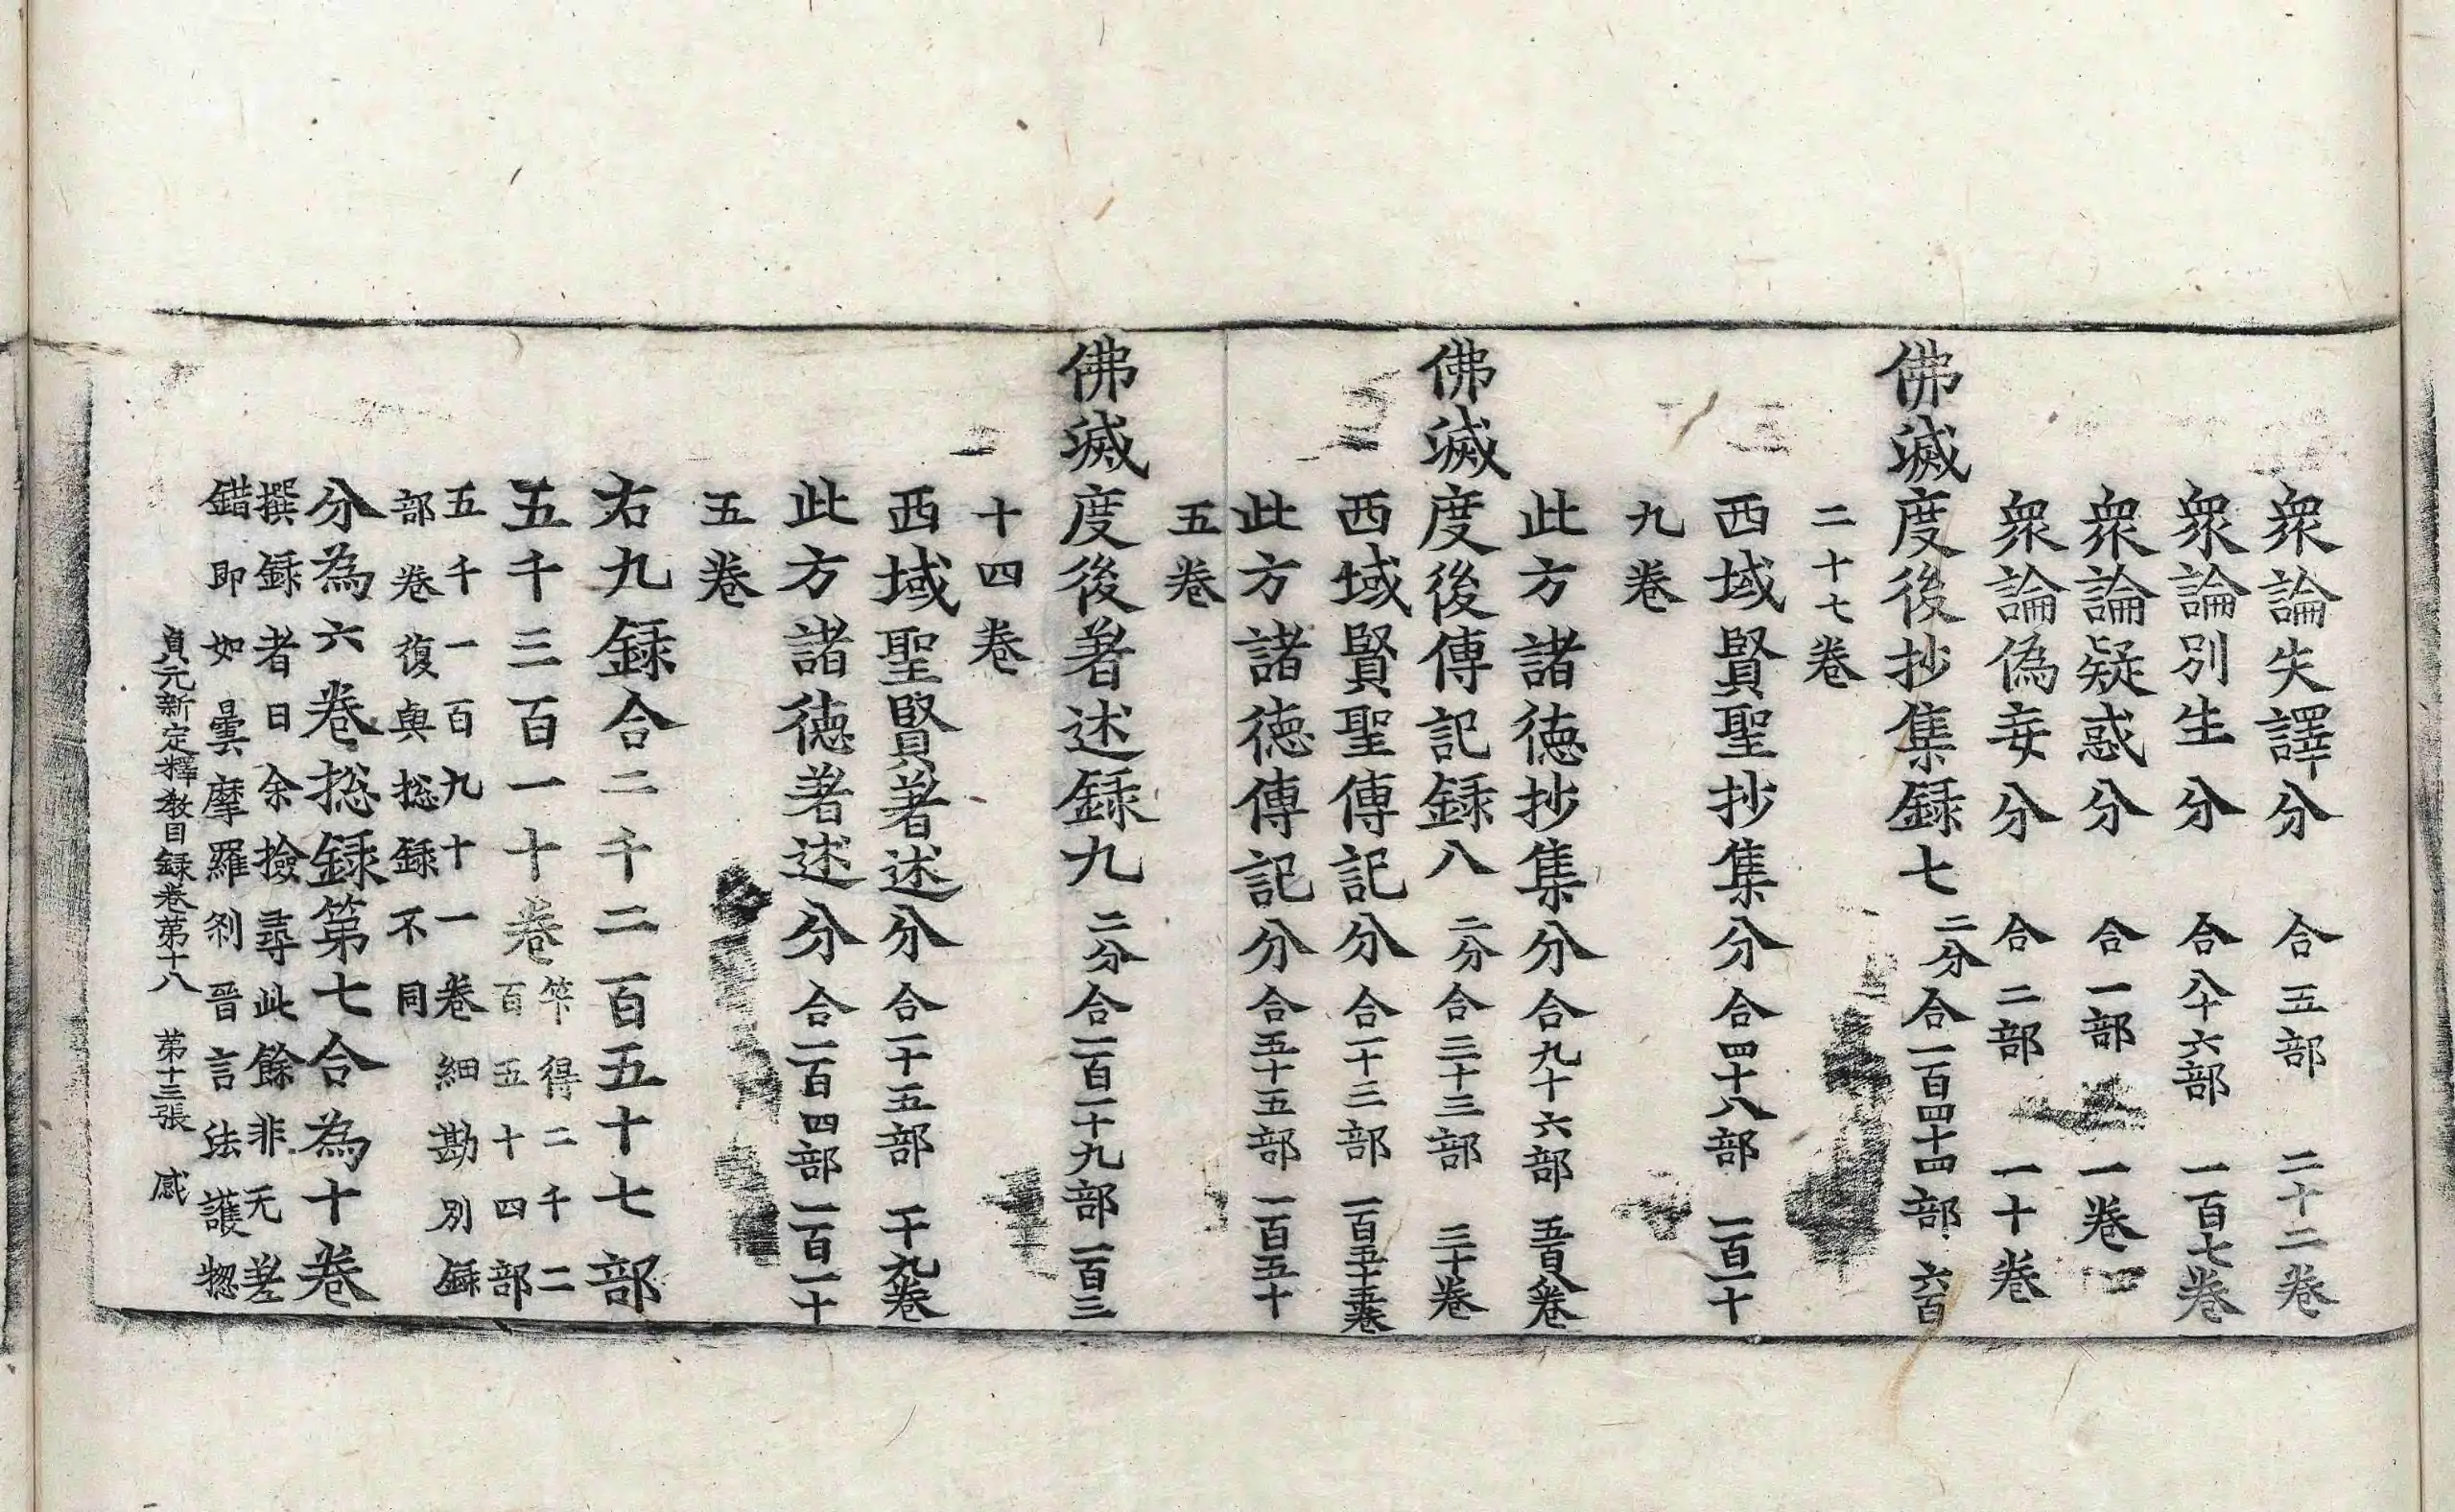 衆論失譯分 合五部 二十二卷
衆論別生分 合八十六部 一百七卷
衆論疑惑分 合一部 一卷
衆論偽妄分 合二部 一十卷
佛滅度後抄集録七 二分合一百四十四部 六百
二十七卷
西域賢聖抄集分 合四十八部 一百一十
九卷
此方諸德抄集分 合九十六部 五百八卷
佛滅度後傳記録八 二分合三十三部 三十卷
西域賢聖傳記分 合一十三部 一百五十五卷
此方諸德傳記分 合五十五部 一百五十
五卷
佛滅度後著述録九 二分合一百一十九部 一百三
十四卷
西域聖賢著述分 合一十五部 一十九卷
此方諸德著述分 合一百四部 一百一十
五卷
右九録合二千二百五十七部
五千三百一十卷 筭得二千二
百五十四部
五千一百九十一卷細勘別録
部卷復與揔録不同
分為六卷揔録第七合為十卷
撰録者曰余撿尋此餘非无差
錯即如曇摩羅刹晉言法護揔
貞元新定釋教目録卷第十八 第十三張 感